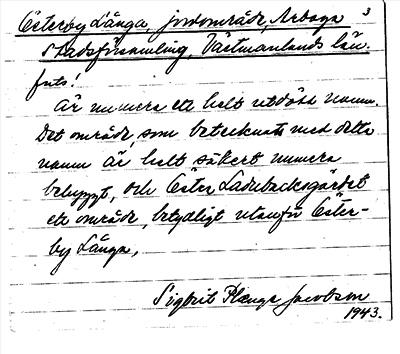 3
Österby Långa jordområde, Arboga
stadsförsamling, Västmanlands län.
futs!
Är numera ett helt utdött namn.
Det område, som betecknats med detta
namn är helt säkert numera
bebyggt, och Öster Ladubacksgärdet
ett område, betydligt utanför Öster-
by Långa.
Sigbrit Plænge Jacobson
1943.